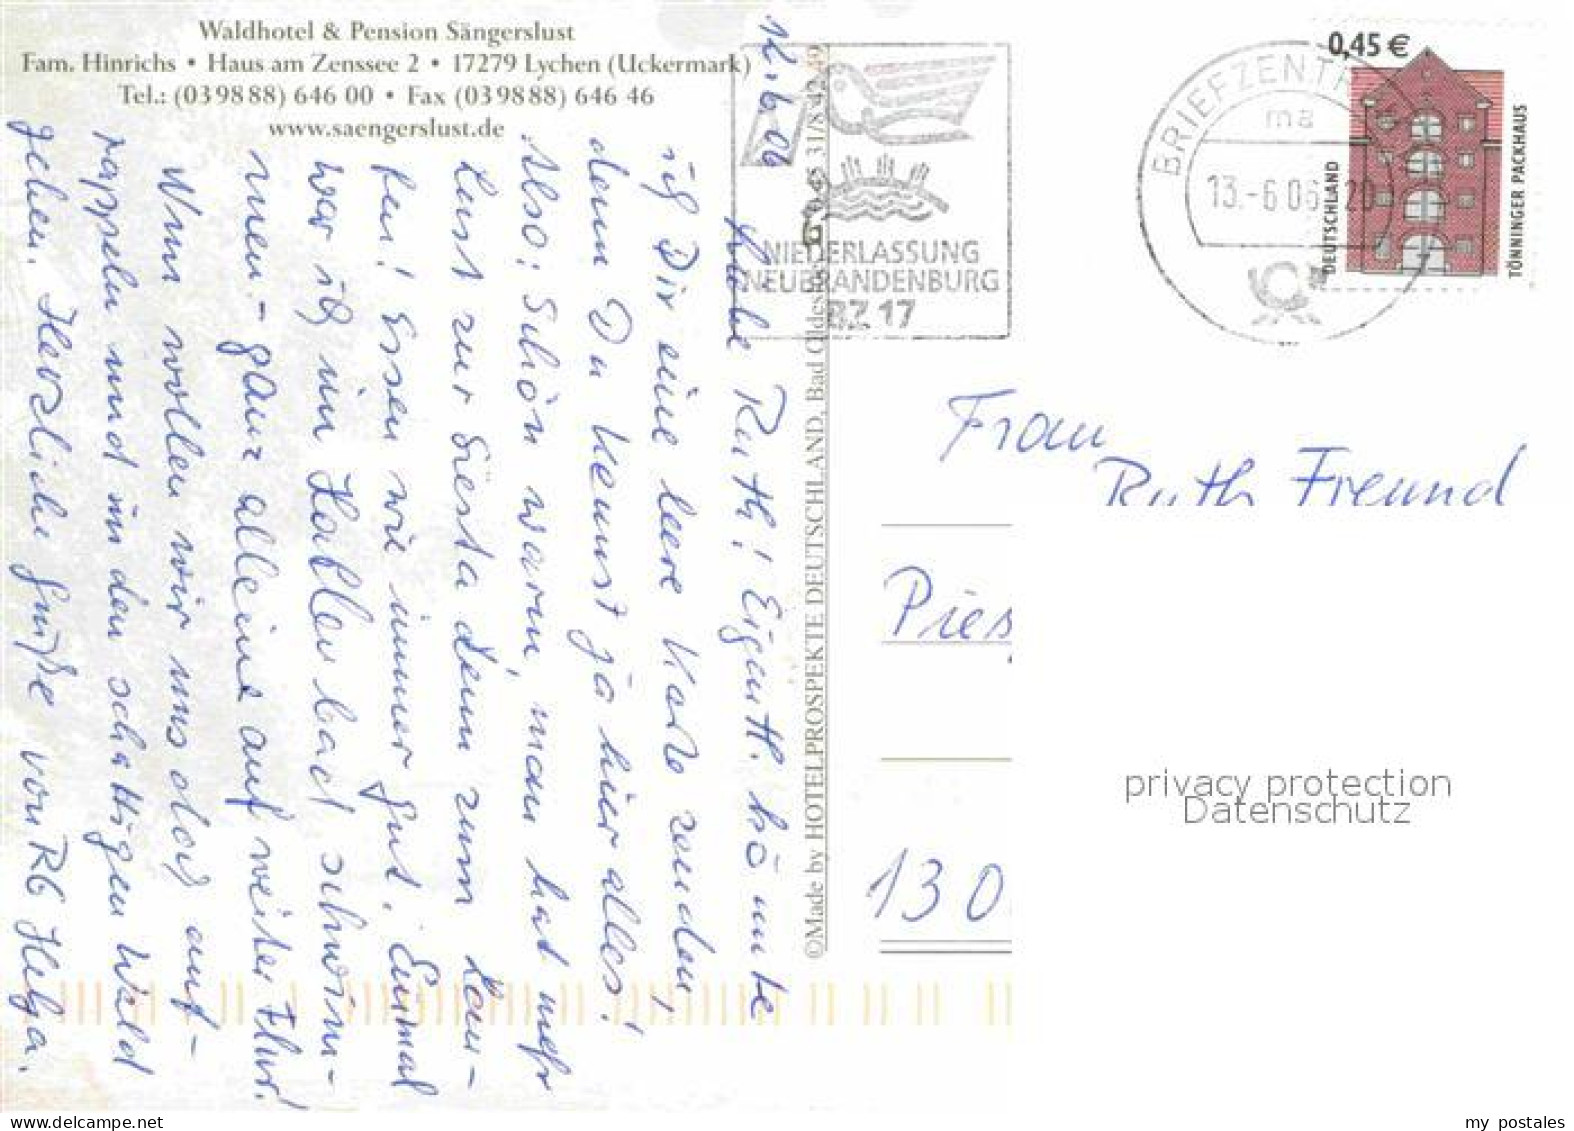 Waldhotel & Pension Sängerslust
Fam. Hinrichs • Haus am Zenssee 2 • 17279 Lychen (Uckermark)
Tel.: (03 98 88) 646 00 • Fax (03 98 88) 646 46
www.saengerslust.de
12.6.06
Liebe Ruth! Eigentl. könnte
ich Dir eine leere Karte senden,
denn Du kennst ja hier alles!
Also: Schön warm, man hat mehr
Lust zur Siesta denn zum Lau-
fen! Essen wie immer gut. Einmal
war ich im Hallenbad schwim-
men - ganz alleine auf weiter Flur!
Nun wollen wir uns doch auf-
rappeln und in den schattigen Wald
gehen. Herzliche Grüße von RG Helga.
©Made by HOTELPROSPEKTE DEUTSCHLAND, Bad Oldesloe 0 45 31/8 42 49
NIEDERLASSUNG
NEUBRANDENBURG
BZ 17
BRIEFZENTR
ma
13.-6 06 20
0,45 €
DEUTSCHLAND
TÖNNINGER PACKHAUS
Frau
Ruth Freund
Pies
130
privacy protection
Datenschutz
www.delcampe.net
my_postales